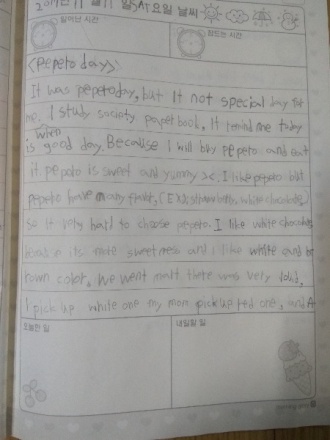 2017년 11월 11일 SAT요일 날씨
일어난 시간
잠드는 시간
<Pepeto day>
It was pepetoday, but It not special day for
me. I study society pocketbook, It remind me today
when
is good day. Because I will buy pepeto and eat
it. pepeto is sweet and yummy I like pepeto but
pepeto have many flavor, (Ex: strawberry, white chocolate)
so it very hard to choose pepeto. I like white chocolate
because its more sweetness and i like white and b
rown color, we went mart there was very loud,
I pick up white one my mom pick up red one, and A
오늘한 일
내일할 일